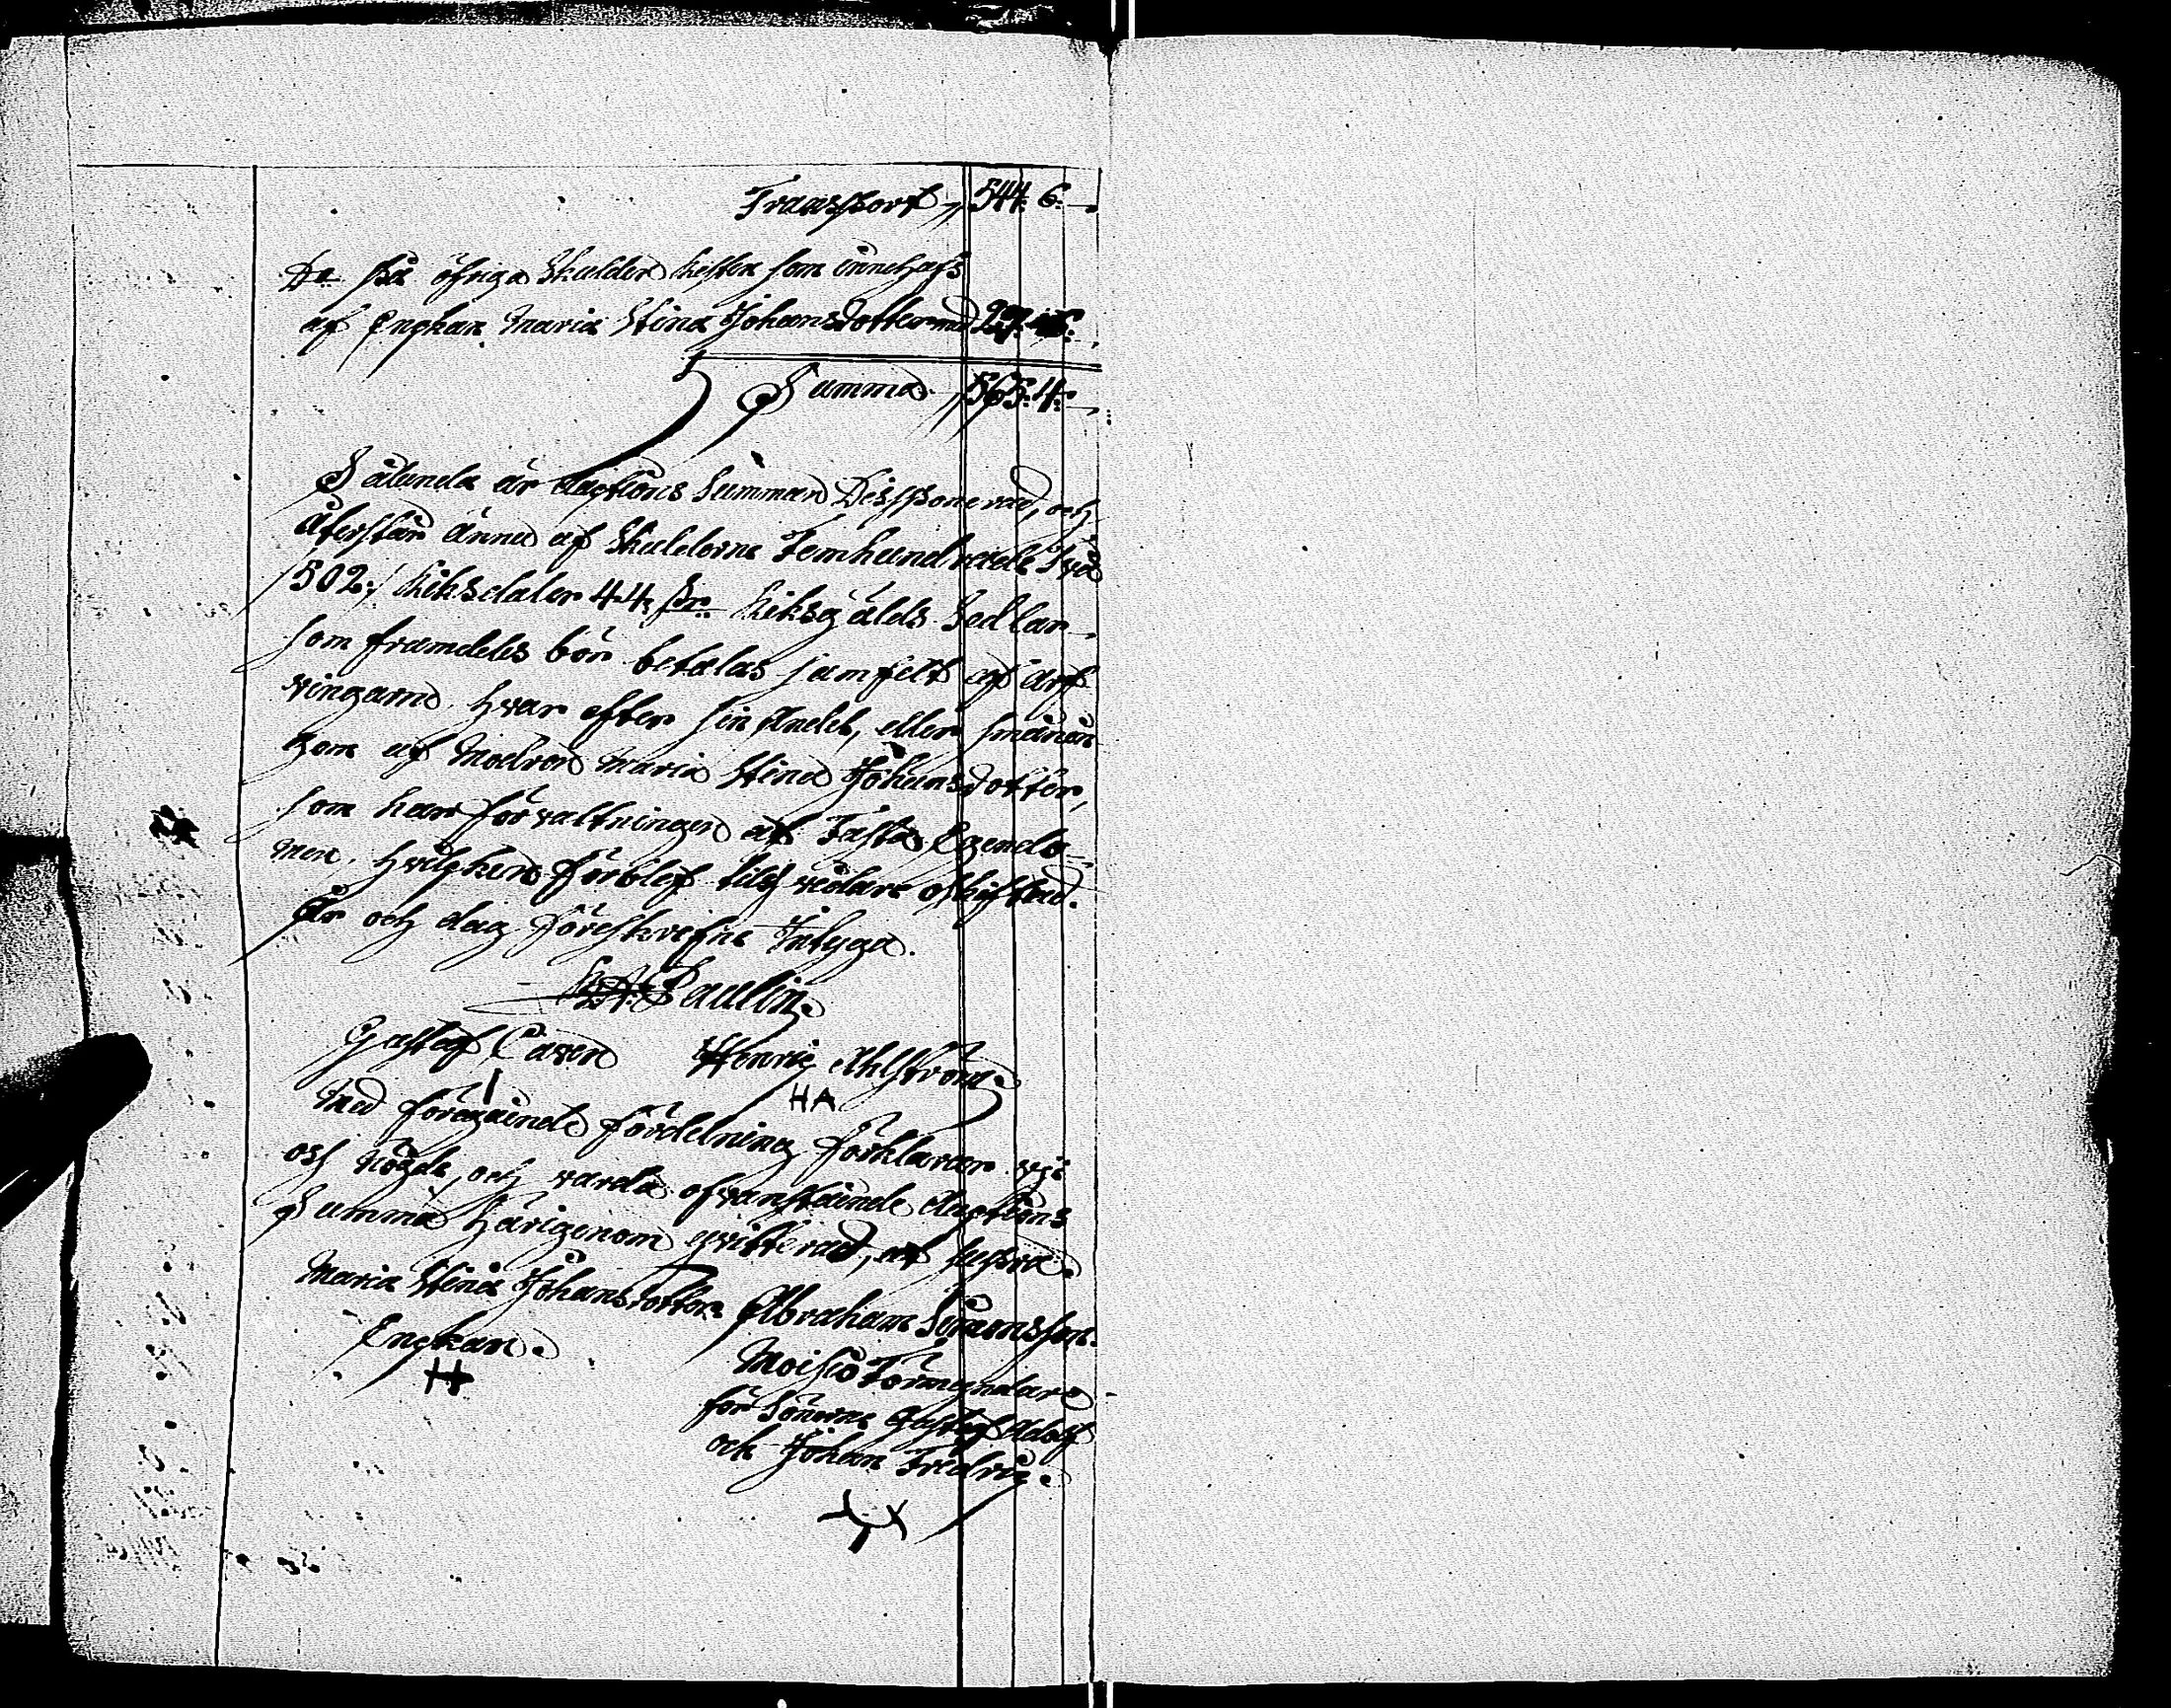 Transport „ 544. 6. —
Do på öfriga Skulder Resten som innehafs
af Enckan Maria Stina Johansdotter med
Summa „ 565. 4. —
Sålunda är Auctions Summan Dissponerad, och
återstår ännu af Skulderne Femhundrade Två
/502:/ Riksdaler 44 sk. Riksgälds Sedlar
som framdeles bör betalas jamfelt af arf
vingarne, hvar efter sin Andel, eller smånin
gom af Modren Maria Stina Johansdotter,
som har förvaltningen af Fasta Egendo-
men, hvilcken förblef tils vidare oskiftad.
År och dag föreskrefne Intyga.
Paulin.
Gustaf Caven Henric Ahlström.
HA
Med föregående fördelning förklarar vi
oss Nögde, och varda ofvanstående Auctions
Summa härigenom qvitterad, ut supra.
Maria Stina Johansdotter Abraham Simonsson
Enckan. Moisio Förmyndare
H för Sönerne Gustaf Adolf
och Johan Fredric.